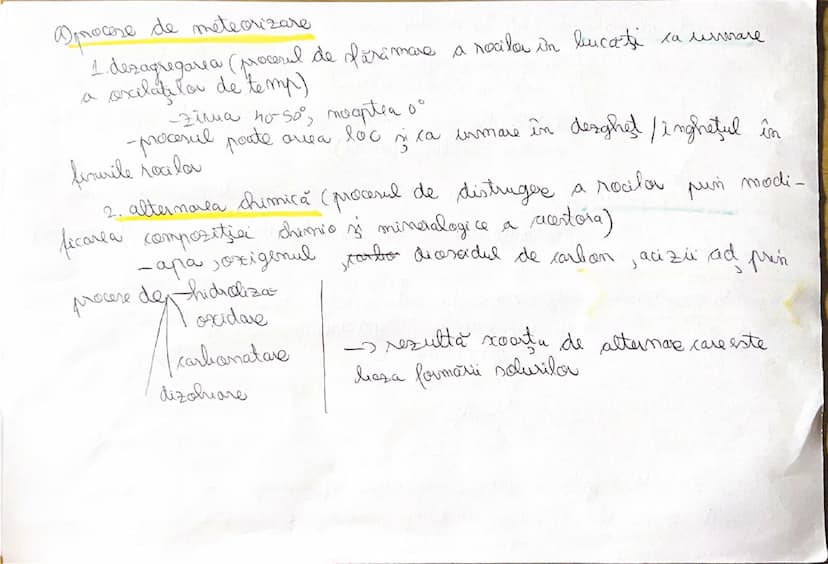 a) procese de meteorizare
1. dezagregarea (procesul de fărâmare a rocilor în bucăți ca urmare
a oscilațiilor de temp)
-ziua 40-50°, noaptea 0°
-procesul poate avea loc și ca urmare în dezgheț/înghețul în
fisurile rocilor
2. alternarea chimică (procesul de distrugere a rocilor prin modi-
ficarea compoziției chimio și mineralogice a acestora)
-apa, oxigenul, carbo dioxidul de carbon, acizii ad, prin
procese de -hidroliza
oxidare
carbonatare
dizolvare
-> rezultă scoarța de alternare care este
baza formării solurilor